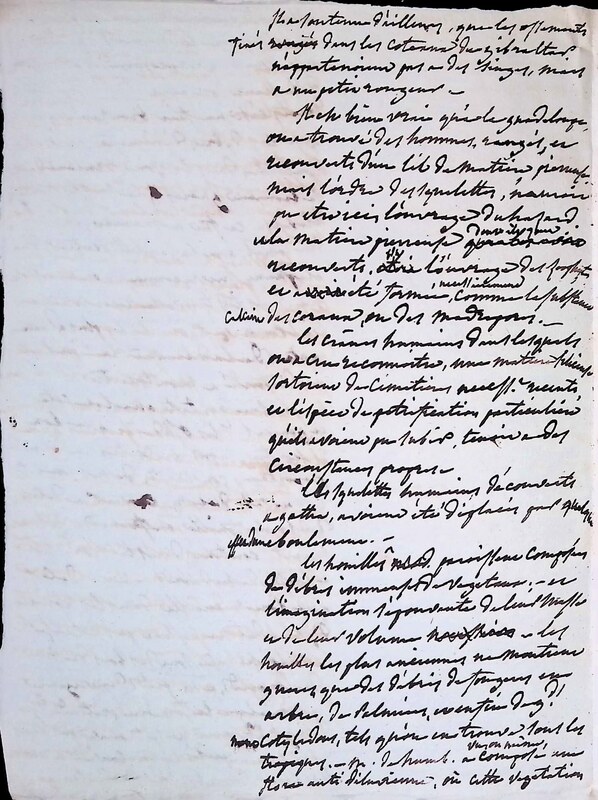 Il a soutenu d'ailleurs, que les ossements
tirés dans les coteaux de gibraltar
n'appartenoient pas a des singes, mais
a un petit rongeur.
Il est bien vrai qu'à la guadeloupe,
on a trouvé des hommes, rangés, et
recouverts d'un lit de matiere pierreuse
mais l'ordre des squelettes, n'auroit
pu etre ici l'ouvrage du hasard
et la matiere pierreuse dont ils sont
recouverts, l'ouvrage des
et a été formée, comme la substance
calcaire des coraux, ou des madrepores. —
les crânes humains dans lesquels
on a cru reconnoitre, une matiere siliceuse
sortoient de cimetieres recents
et l'espèce de petrification particulière
qu'ils avoient pu subir, tenoit a des
circonstances propres —
Les squelettes humains découverts
a avoient été déplacés par quelque
effet d'un eboulement. —
les houilles paroissent composées
de débris immenses de vegetaux, — et
l'imagination s'epouvante de leur masse
et de leur volume — les
houilles les plus anciennes ne montrent
gueres que des débris de fougeres en
arbre, de Palmiers, enfin de gds
monocotyledons, tels qu'on en trouve sous les
tropiques. — M. de humb. a composé une
flore anti diluvienne, où cette vegetation